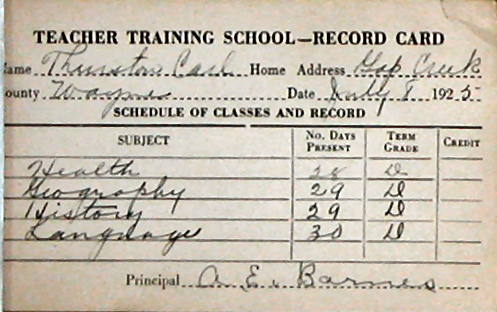 TEACHER TRAINING SCHOOL—RECORD CARD
Name Thurston Carl Home Address Gap Creek
County Wayne Date July 8 1925
SCHEDULE OF CLASSES AND RECORD
SUBJECT No. DAYS PRESENT TERM GRADE CREDIT
Health 28 D
Geography 29 D
History 29 D
Language 30 D
Principal A. E. Barnes